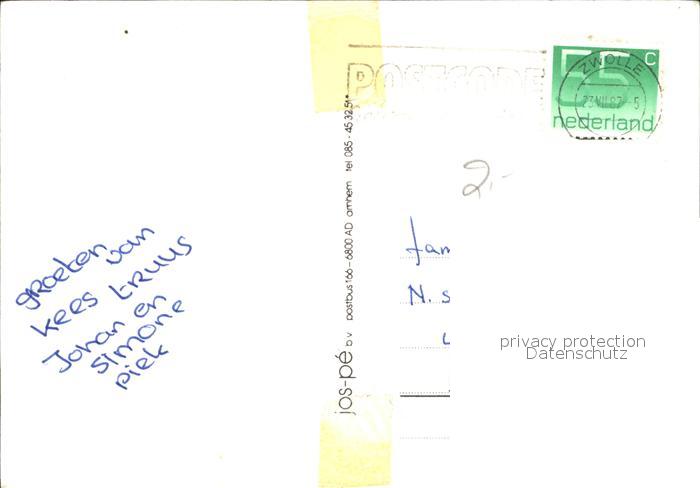 groeten van
kees truus
Johan en
simone
piek
jos-pé b.v. postbus 166 - 6800 AD arnhem tel 085 - 45 32 51*
POSTCODE
55 C
nederland
ZWOLLE
23.VII.87 - 5
2,-
fam
N. s
privacy protection
Datenschutz